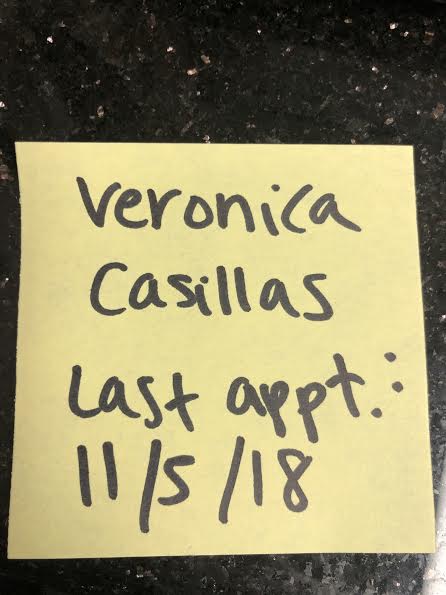 Veronica
Casillas
Last appt.:
11/5/18